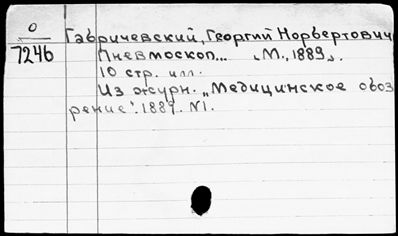 О
7246
Габричевский, Георгий Норбертович
Пневмоскоп... „М., 1889„.
10 стр. илл.
Из журн. „Медицинское обоз
рение". 1889. №1.